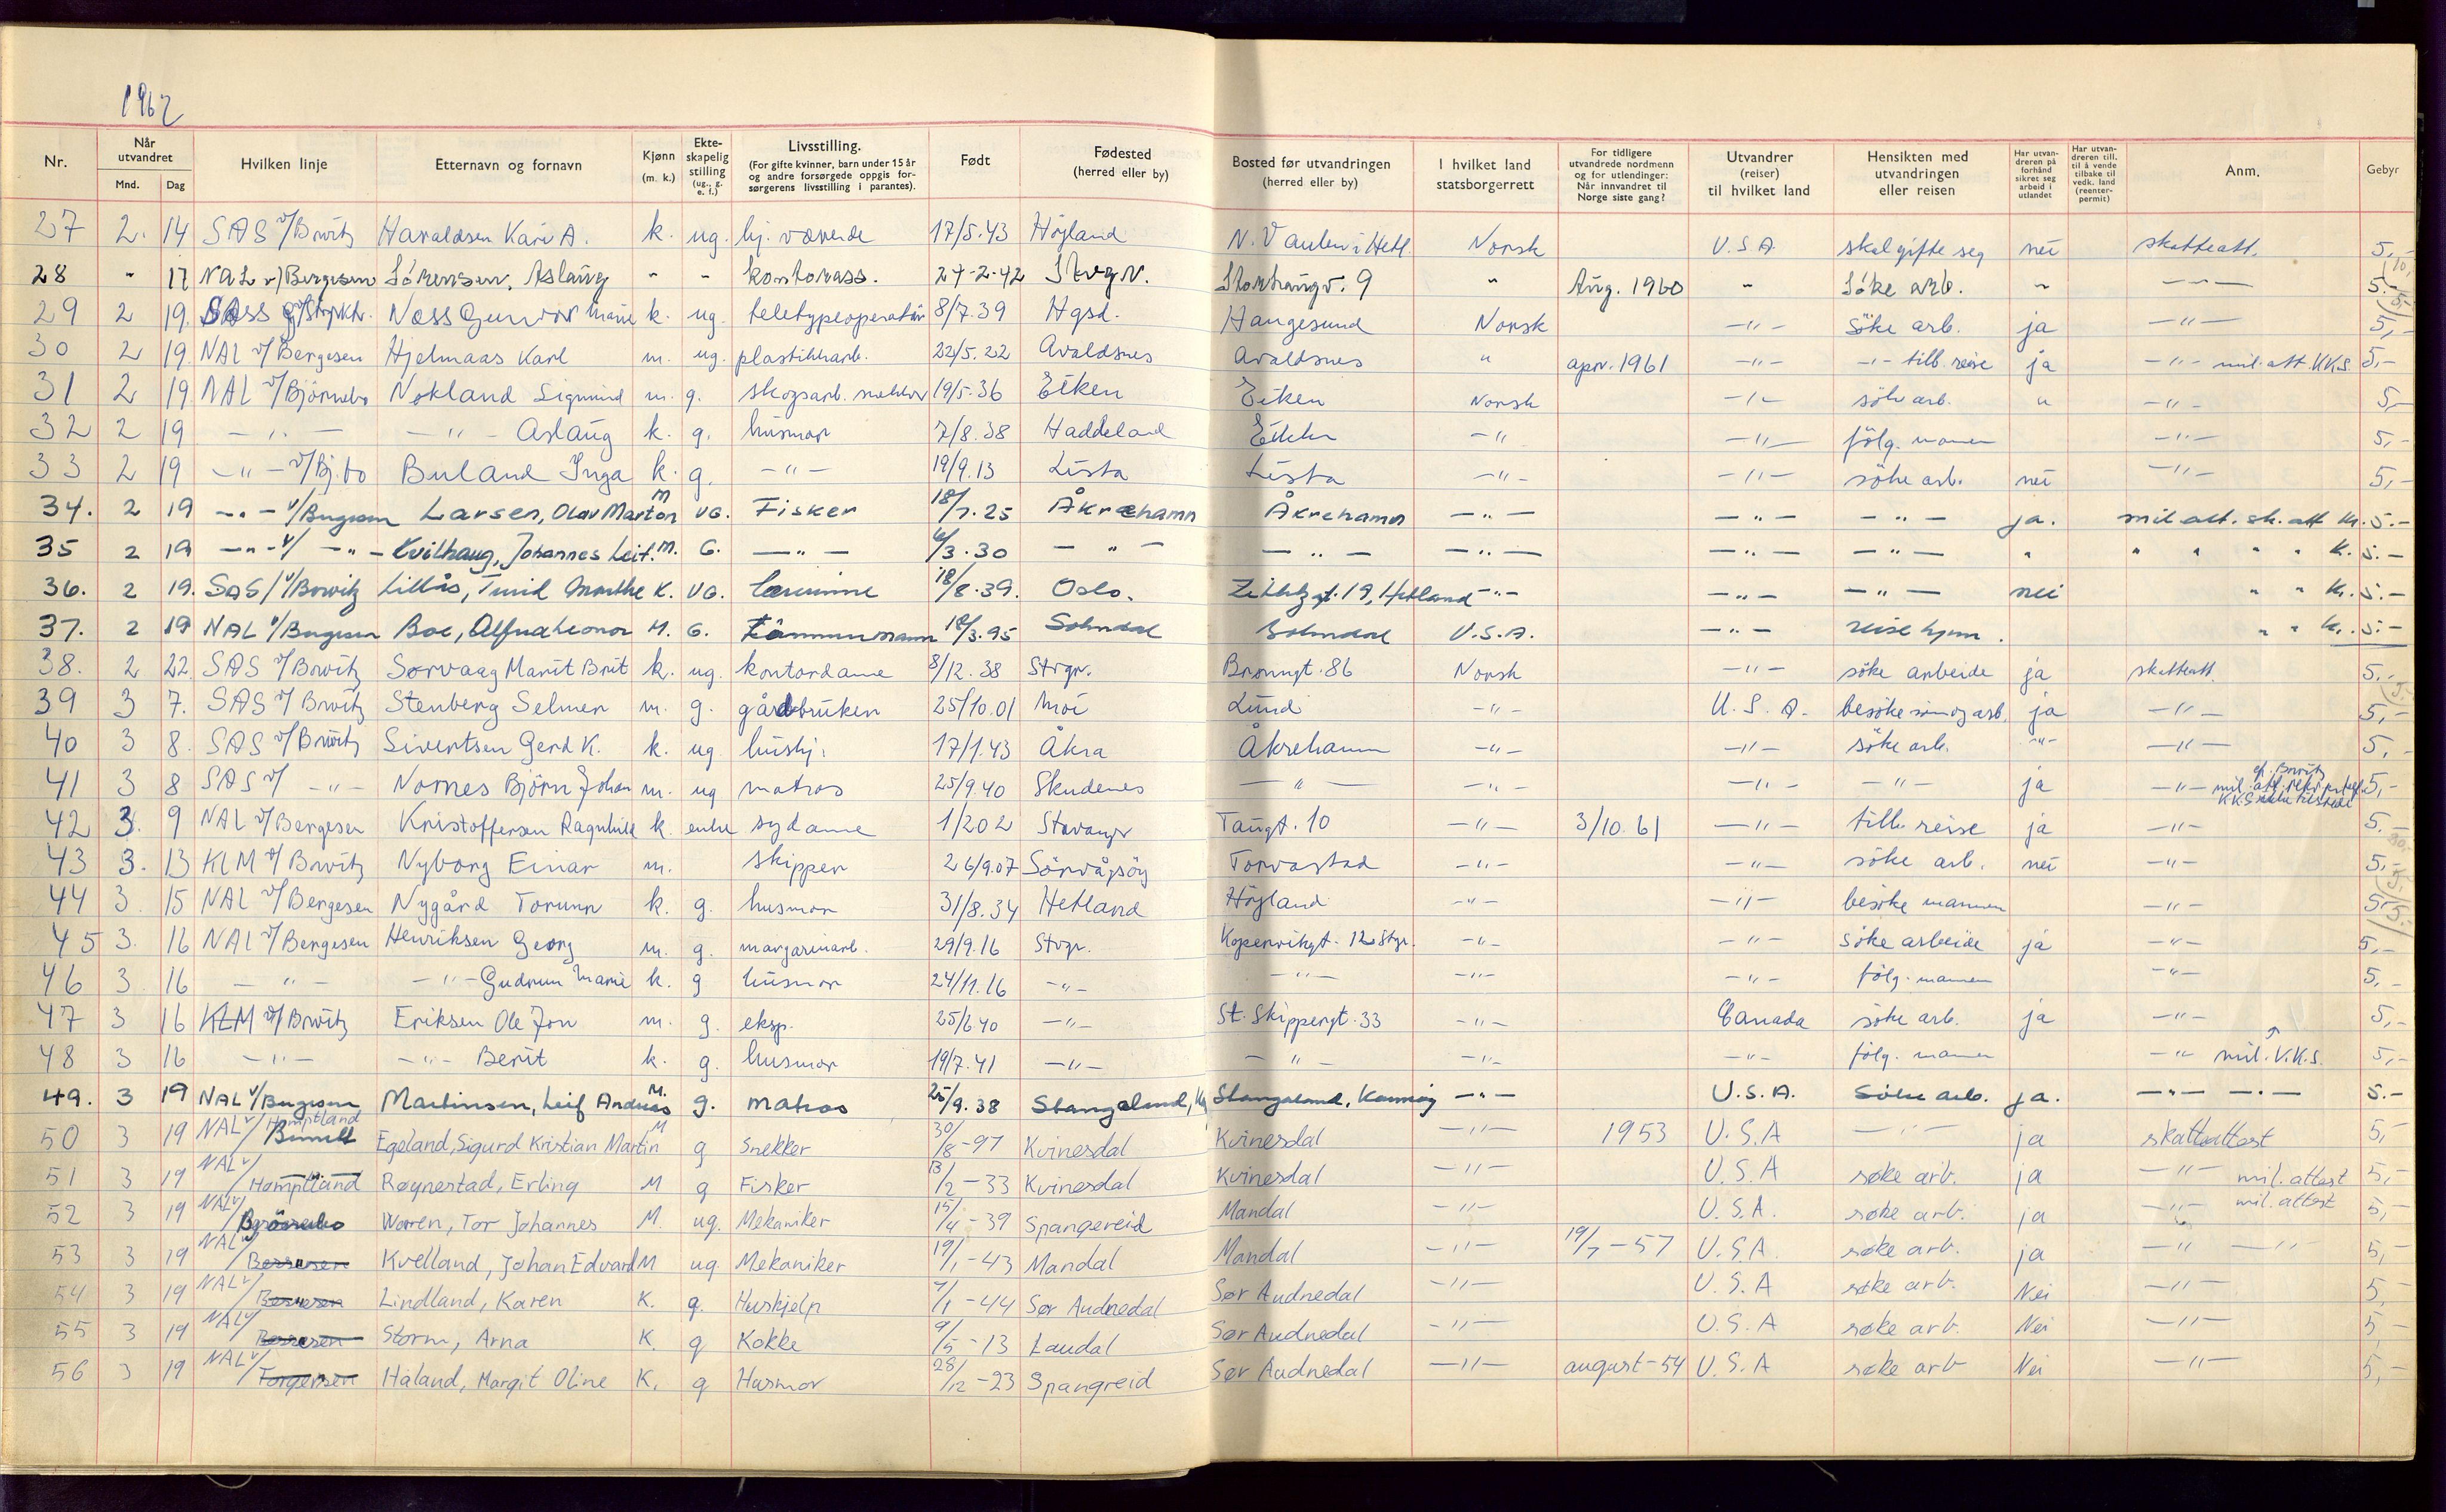 1962
Nr. Når utvandret Mnd. Dag Hvilken linje Etternavn og fornavn Kjønn (m. k.) Ekte-skapelig stilling (ug., g. e. f.) Livsstilling. (For gifte kvinner, barn under 15 år og andre forsørgede oppgis for-sørgerens livsstilling i parantes). Født Fødested (herred eller by) Bosted før utvandringen (herred eller by) I hvilket land statsborgerrett For tidligere utvandrede nordmenn og for utlendinger: Når innvandret til Norge siste gang? Utvandrer (reiser) til hvilket land Hensikten med utvandringen eller reisen Har utvan-dreren på forhånd sikret seg arbeid i utlandet Har utvan-dreren till. til å vende tilbake til vedk. land (reenter-permit) Anm. Gebyr
27 2. 14 SAS v/Borvitz Haraldsen Kari A. k. ug. hj. værende 17/5.43 Høyland Norsk U.S.A. skal gifte seg nei skatteatt. 5,-
28 " 17 NAL v/Bergesen Sörensen, Aslaug - - kontorass. 27-2-42 Stvgr. 9 " Aug. 1960 " Söke arb. " - " - 5.-
29 2 19. Næss Gunvor Marie k. ug. teletypeoperatör 8/7.39 Hgsd. Haugesund Norsk - " - söke arb. ja - " - 5,-
30 2 19. NAL v/Bergesen Hjelmaas Karl m. ug. plastikkarb. 22/5.22 Avaldsnes Avaldsnes " apr. 1961 - " - - " - tilb. reise ja - " - mil. att. KKS 5,-
31 2 19 NAL v/Björnebo Nokland Sigmund m. g. skogsarb. 19/5.36 Eiken Eiken Norsk - " - söke arb. " - " - 5,-
32 2 19 - " - - " - Aslaug k. g. husmor 7/8.38 Haddeland Eiken - " - " - fölg. mannen - " - 5,-
33 2 19 - " - v/Bj.bo Buland Inga k. g. - " - 19/9.13 Lista Lista - " - - " - söke arb. nei - " - 5,-
34. 2 19 - " - v/Bergesen Larsen, Olav Marton M UG. Fisker 18/7.25 Åkrehamn Åkrehamn - " - - " - - " - ja. mil att. sk. att Kr. 5.-
35 2 19 - " - v/ - " - Kvilhaug, Johannes Leif. M. G. - " - 6/3.30 - " - - " - - " - - " - - " - " " " " " K. 5.-
36. 2 19. SAS/v/Borvitz Lillås, Turid Marthe K. UG. 18/8.39. Oslo. 19, Hetland - " - - " - - " - nei " " Kr. 5.-
37. 2 19 NAL v/Bergesen Boe, M. G. Tömmermann 18/3.95 Sokndal Sokndal U.S.A. - " - reise hjem. " " Kr. 5.-
38. 2 22 SAS v/Borvitz Sørvaag Marit Brit k. ug. kontordame 8/12.38 Stvgr. 86 Norsk - " - söke arbeide ja skatteatt. 5,-
39 3 7. SAS v/Borvitz Stenberg Selmer m. g. gårdbruker 25/10.01 Moi Lund - " - U.S.A. besöke sönn og arb. ja - " - 5,-
40 3 8. SAS v/Borvitz Sivertsen Gerd K. k. ug. hushj. 17/1.43 Åkra Åkrehamn - " - - " - söke arb. - " - - " - 5,-
41 3 8 SAS v/ - " - Nornes Björn Johan m. ug matros 25/9.40 Skudenes - " - - " - - " - - " - ja - " - mil. att. 5,-
42 3. 9 NAL v/Bergesen Kristoffersen Ragnhild k. enke sydame 1/2 02 Stavanger Taugt. 10 - " - 3/10.61 - " - tilb. reise ja - " - 5.-
43 3. 13 KLM v/Borvitz Nyborg Einar m. skipper 26/9.07 Sörvågsöy Torvastad - " - - " - söke arb. nei - " - 5,-
44 3. 15 NAL v/Bergesen Nygård Torunn k. g. husmor 31/8.34 Hetland Höyland - " - - " - besöke mannen - " - 5,-
45 3. 16 NAL v/Bergesen Henriksen Georg m. g. margarinarb. 29/9.16 Stvgr. Kopervikgt. 12 Stgr. - " - - " - söke arbeide ja - " - 5,-
46 3 16 - " - - " - Gudrun Marie k. g husmor 24/11.16 - " - - " - - " - - " - fölg. mannen - " - 5,-
47 3 16 KLM v/Borvitz Eriksen Ole Jon m. g. eksp. 25/6 40 - " - St. Skippergt. 33 - " - Canada söke arb. ja - " - 5,-
48 3 16 - " - - " - Berit k. g. husmor 19/7.41 - " - - " - - " - - " - fölg. mannen - " mil. V.K.S. 5,-
49. 3 19 NAL v/Bergesen Martinsen, Leif Andreas M. g. matros 25/9.38 Stangeland, K Stangeland, Karmøy - " - U.S.A. Söke arb. ja. - " - - " - 5.-
50 3 19 NAL v/ Homptland Egeland, Sigurd Kristian Martin M g Snekker 30/8-97 Kvinesdal Kvinesdal - " - 1953 U.S.A - " - ja skatteattest 5,-
51 3 19 NAL v/Homptland Røynestad, Erling M g Fisker 13/2-33 Kvinesdal Kvinesdal - " - U.S.A søke arb. ja - " - mil. attest 5,-
52 3 19 NAL v/Bjørnebo Warren, Tor Johannes M. ug. Mekaniker 15/4-39 Spangereid Mandal - " - U.S.A. søke arb. ja - " - mil. attest 5,-
53 3 19 NAL v/ Kvelland, Johan Edvard M ug Mekaniker 19/1-43 Mandal Mandal - " - 19/7-57 U.S.A. søke arb. ja - " - " - 5,-
54 3 19 NAL v/ Lindland, Karen K. g. Huskjelp 7/1-44 Sør Audnedal Sør Audnedal - " - U.S.A søke arb. Nei - " - 5,-
55 3 19 NAL v/ Storm, Arna K. g Kokke 9/5-13 Laudal Sør Audnedal - " - U.S.A søke arb. Nei - " - 5-
56 3 19 NAL v/Torgersen Håland, Margit Oline K. g Husmor 28/12-23 Spangreid Sør Audnedal - " - august-54 U.S.A søke arb Nei - " - 5,-